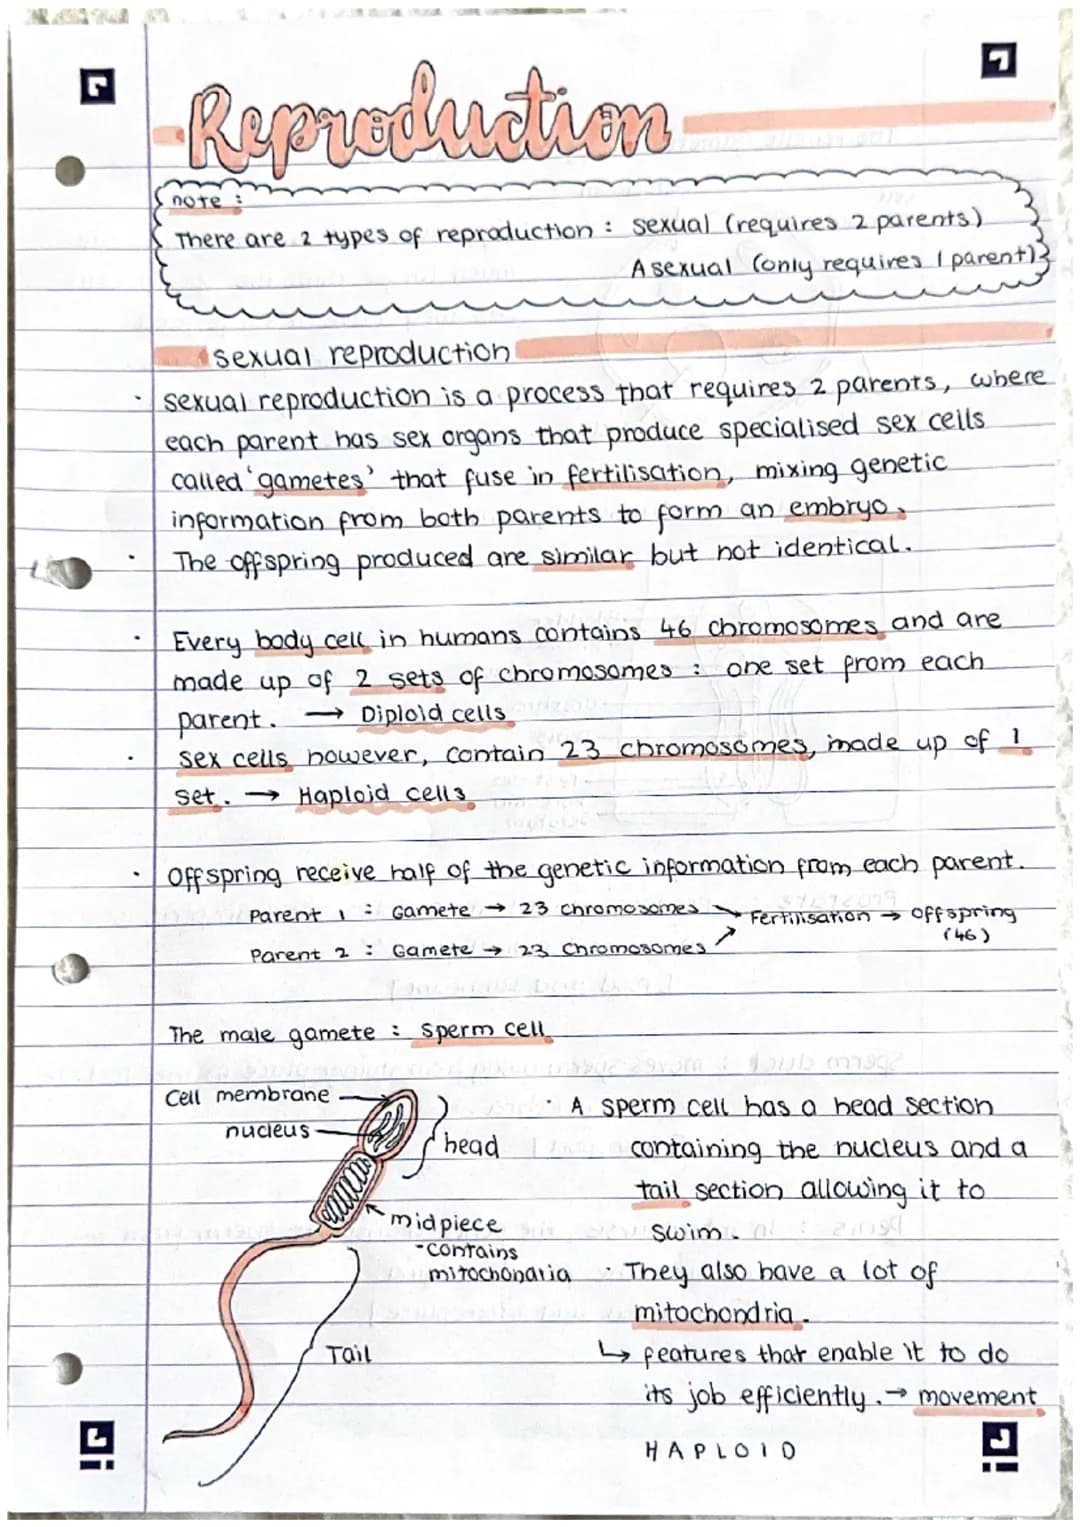 Reproduction
note :
There are 2 types of reproduction : sexual (requires 2 parents)
Asexual (only requires 1 parent)
sexual reproduction
· sexual reproduction is a process that requires 2 parents, where
each parent has sex organs that produce specialised sex cells
called 'gametes' that fuse in fertilisation, mixing genetic
information from both parents to form an embryo.
· The offspring produced are similar but not identical.
· Every body cell in humans contains 46 chromosomes and are
made up of 2 sets of chromosomes : one set from each
parent. → Diploid cells
· sex cells however, contain 23 chromosomes, made up of 1
set. → Haploid cells
· Offspring receive half of the genetic information from each parent.
Parent 1 : Gamete → 23 chromosomes
Fertilisation → offspring
(46)
Parent 2 : Gamete → 23 Chromosomes
The male gamete : sperm cell
Cell membrane
nucleus
head
midpiece
-contains
mitochondria
Tail
· A sperm cell has a head section
containing the nucleus and a
tail section allowing it to
swim.
· They also have a lot of
mitochondria.
↳ features that enable it to do
its job efficiently. → movement
HAPLOID